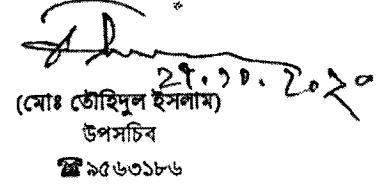 ২৭.১০.২০২০
(মোঃ তৌহিদুল ইসলাম)
উপসচিব
☎৯৫৬৩১৮৬